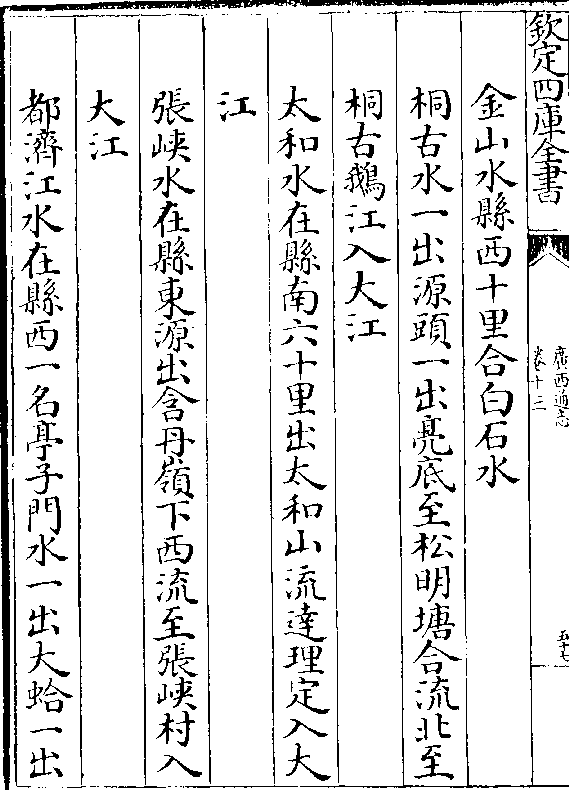 欽定四庫全書
廣西通志
卷十三
五十七
金山水縣西十里合白石水
桐古水一出源頭一出亮底至松明塘合流北至
桐古鵝江入大江
太和水在縣南六十里出太和山流達理定入大
江
張峽水在縣東源出含丹嶺下西流至張峽村入
大江
都濟江水在縣西一名亭子門水一出大蛤一出